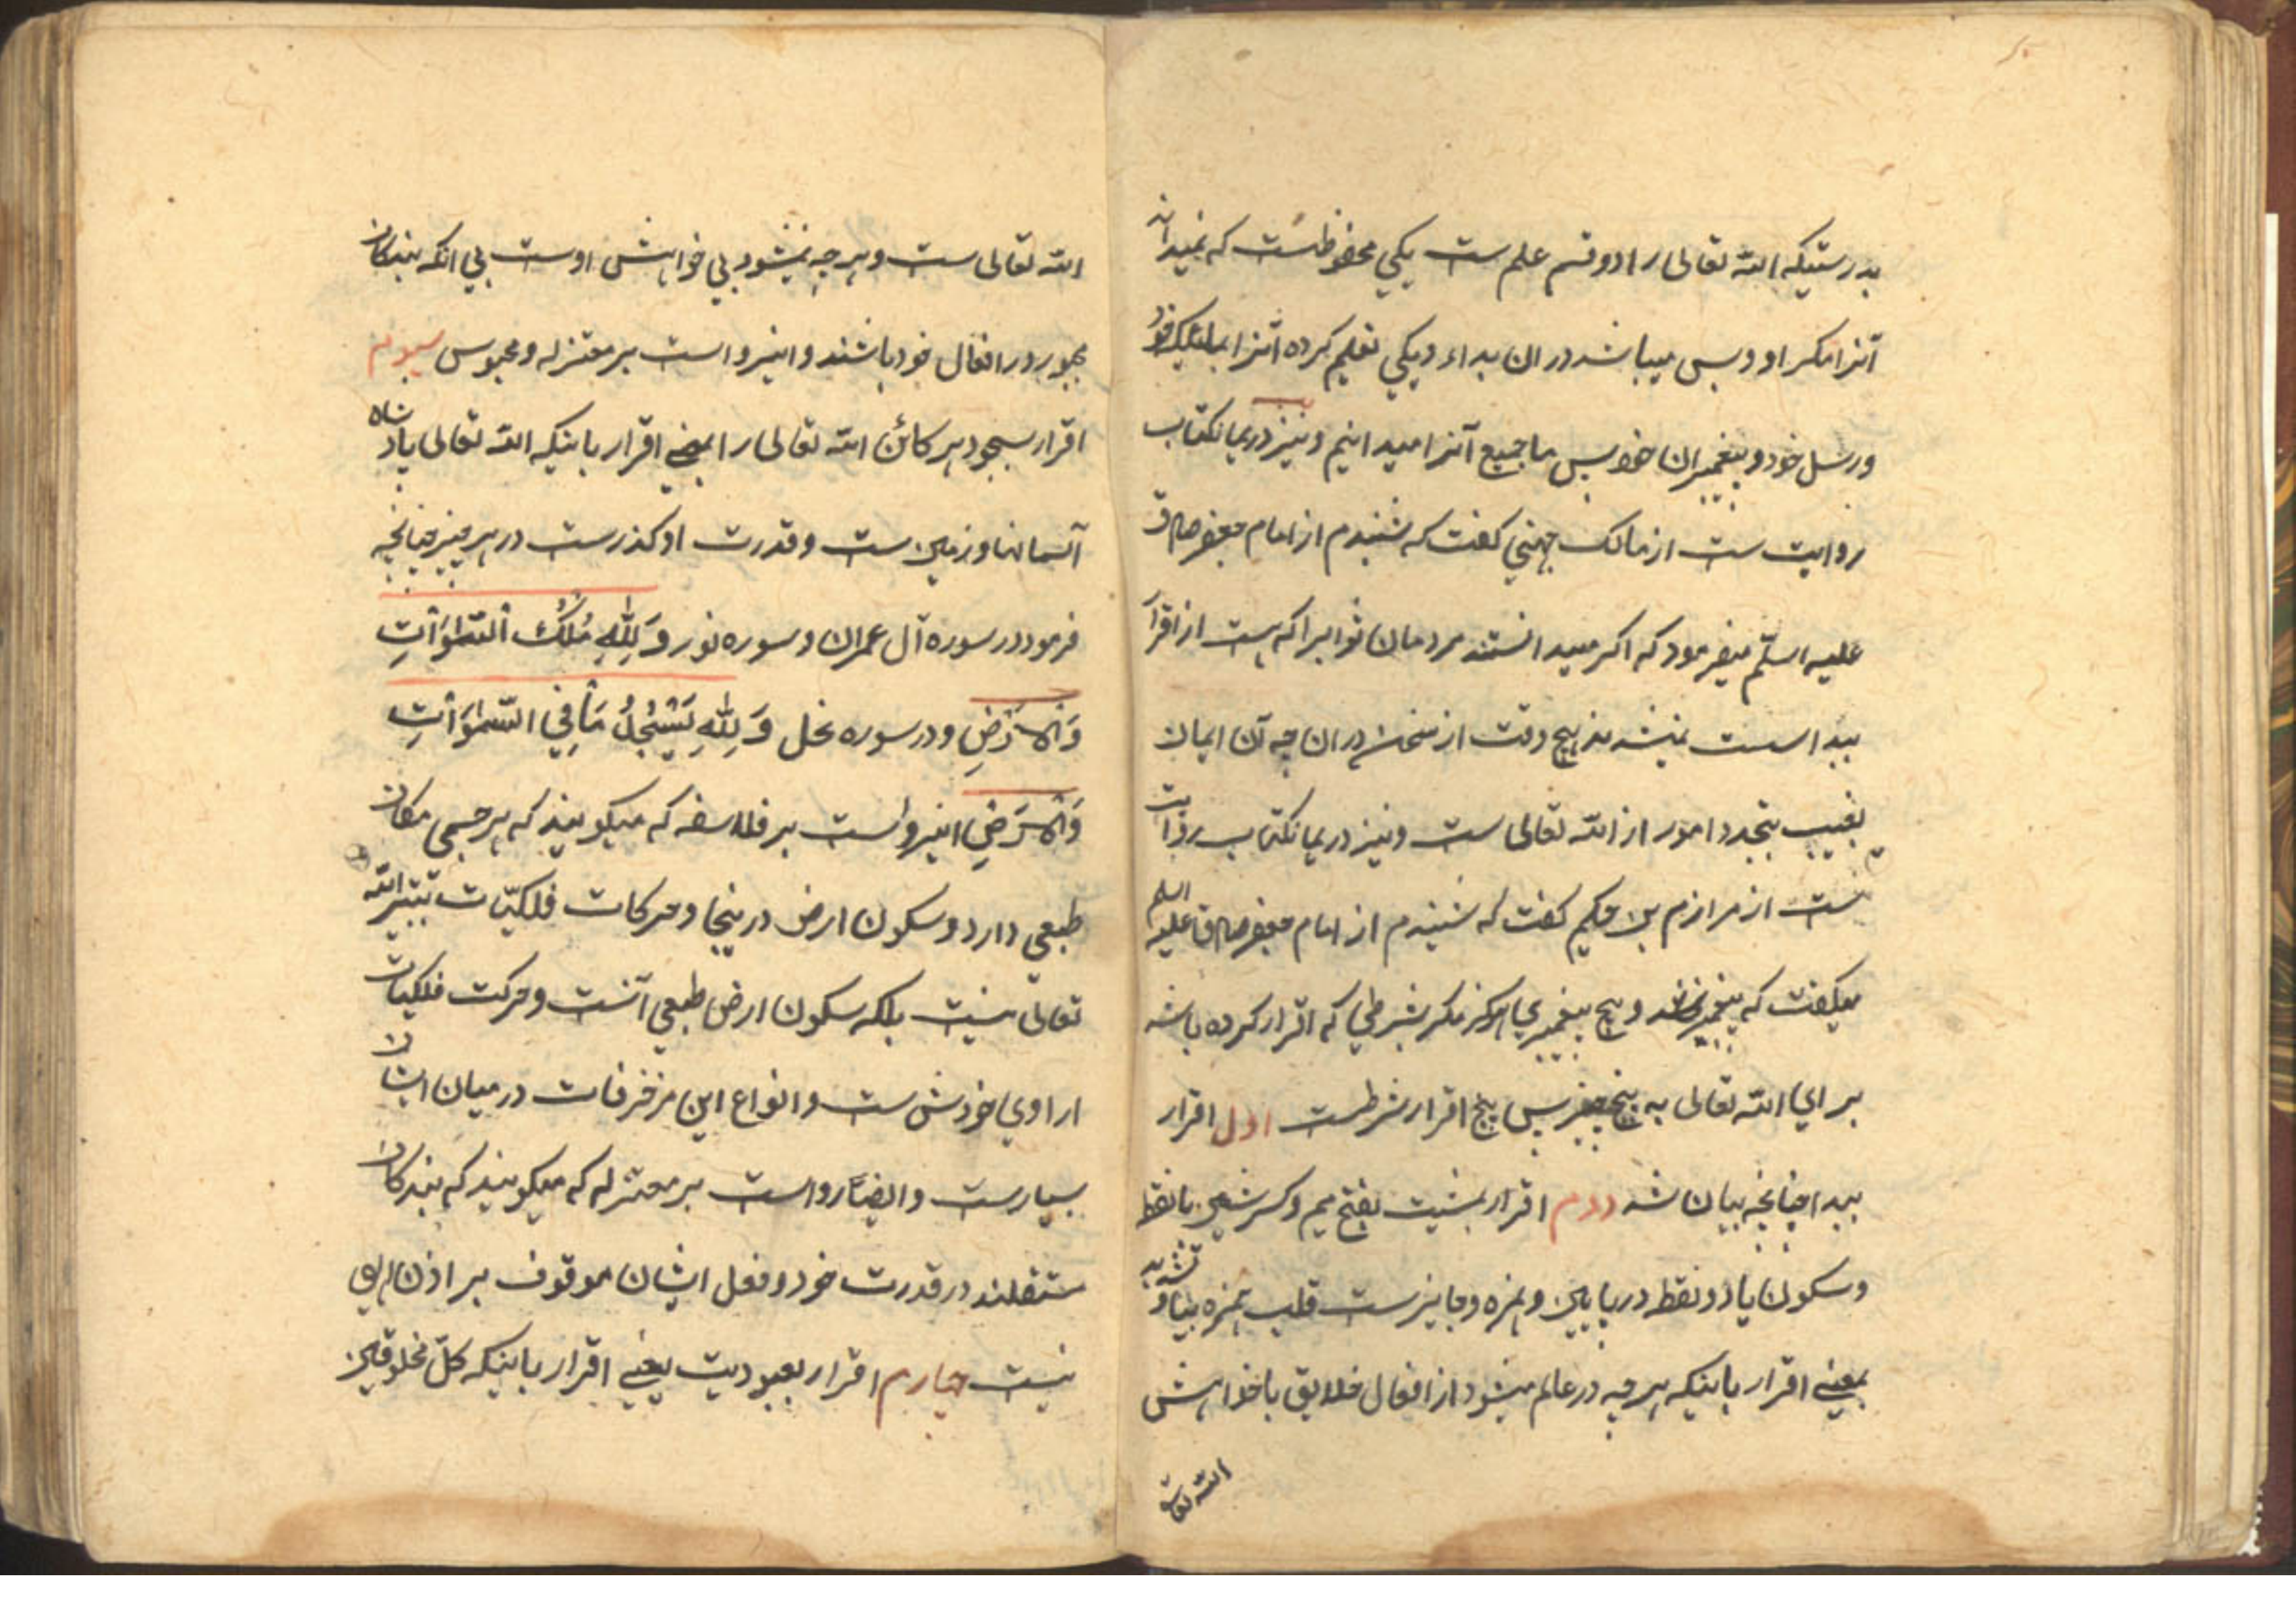 بدرستیکه الله تعالی را دو قسم علم ست یکی محفوظست که نمیداند
آنرا مکر او و بس میباشد در ان بداء و یکی تعلیم کرده آنرا بملئیکه خود
و رسل خود و پیغمبران خود پس ما جمیع آنرا میدانیم و نیز دریمانکتاب
روایت ست از مالک جهنی کفت که شنیدم از امام جعفر صادق
علیه السلم میفرمود که اکر میدانستند مردمان ثوابیرا که هست از اقرار
ببدا سست نمیشدند هیچ وقت از سخن در ان چه آن ایمان
بغیب بتجدد امور از الله تعالی ست و نیز دریمانکتاب روایت
ست از مرازم بن حکیم کفت که شنیدم از امام جعفر صادق علیه السلم
میکفت که پیغمبر نشد هیچ پیغمبری هرکز مکر بشرطی که اقرار کرده باشد
برای الله تعالی به پنج چیز پس پنج اقرار شرطست اول اقرار
ببدا چنانچه بیان شد دوم اقرار بمشیت بفتح میم و کسر شین با نقطه
و سکون یا دو نقطه در پایین و همزه و جایزست قلب همزه بیا و تشدید
بمعنی اقرار باینکه هر چه در عالم میشود از افعال خلایق با خواهش
الله تعالی
الله تعالی ست و هر چه نمیشود بی خواهش اوست بی آنکه بندکان
مجبور در افعال خود باشند و اینرواست بر معتزله و مجوس سیوم
اقرار بسجود هر کائن الله تعالی را بمعنی اقرار باینکه الله تعالی پادشاه
آسمانها و زمین ست و قدرت او کذرست در هر چیز چنانچه
فرمود در سوره آل عمران و سوره نور وَلِلّٰهِ مُلْكُ السَّمٰوَاتِ
وَالْاَرْضِ و در سوره نحل وَلِلّٰهِ يَسْجُدُ مَا فِي السَّمٰوَاتِ
وَالْاَرْضِ اینرواست بر فلاسفه که میکویند که هر جسمی مکان
طبعی دارد و سکون ارض درینجا و حرکات فلکیّات بتدبیر الله
تعالی نیست بلکه سکون ارض طبعی آنست و حرکت فلکیات
ارادی خودش ست و انواع این مزخرفات در میان ایشان
بسیارست و ایضاً رواست بر معتزله که میکویند که بندکان
مستقلند در قدرت خود و فعل ایشان موقوف بر اذن الهی
نیست چهارم اقرار بعبودیت یعنی اقرار باینکه کلّ مخلوقین